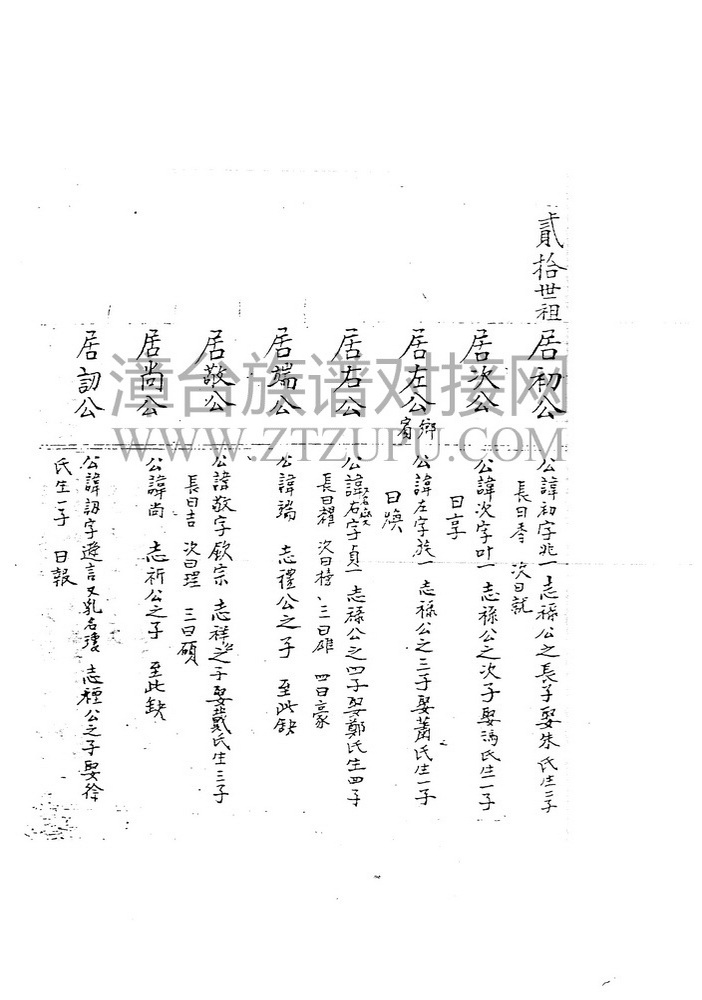 貳拾世祖
居初公
公諱初字兆一志祿公之長子娶朱氏生二子
長曰季 次曰就
居次公
公諱次字叶一志祿公之次子娶馮氏生一子
曰享
居左公 鄉賓
公諱左字於一 志祿公之三子娶蕭氏生一子
曰煥
居右公
公諱右字貞一 志祿公之四子娶鄭氏生四子
長曰耀 次曰榜、三曰雄 四曰豪
居端公
公諱端 志禮公之子 至此缺
居敬公
公諱敬字欽宗 志祥公之子娶戴氏生三子
長曰吉 次曰理 三曰碩
居尚公
公諱尚 志祈公之子 至此缺
居訒公
公諱訒字遜言又乳名 志種公之子娶徐
氏生一子 曰報
漳台族谱对接网
WWW.ZTZUPU.COM